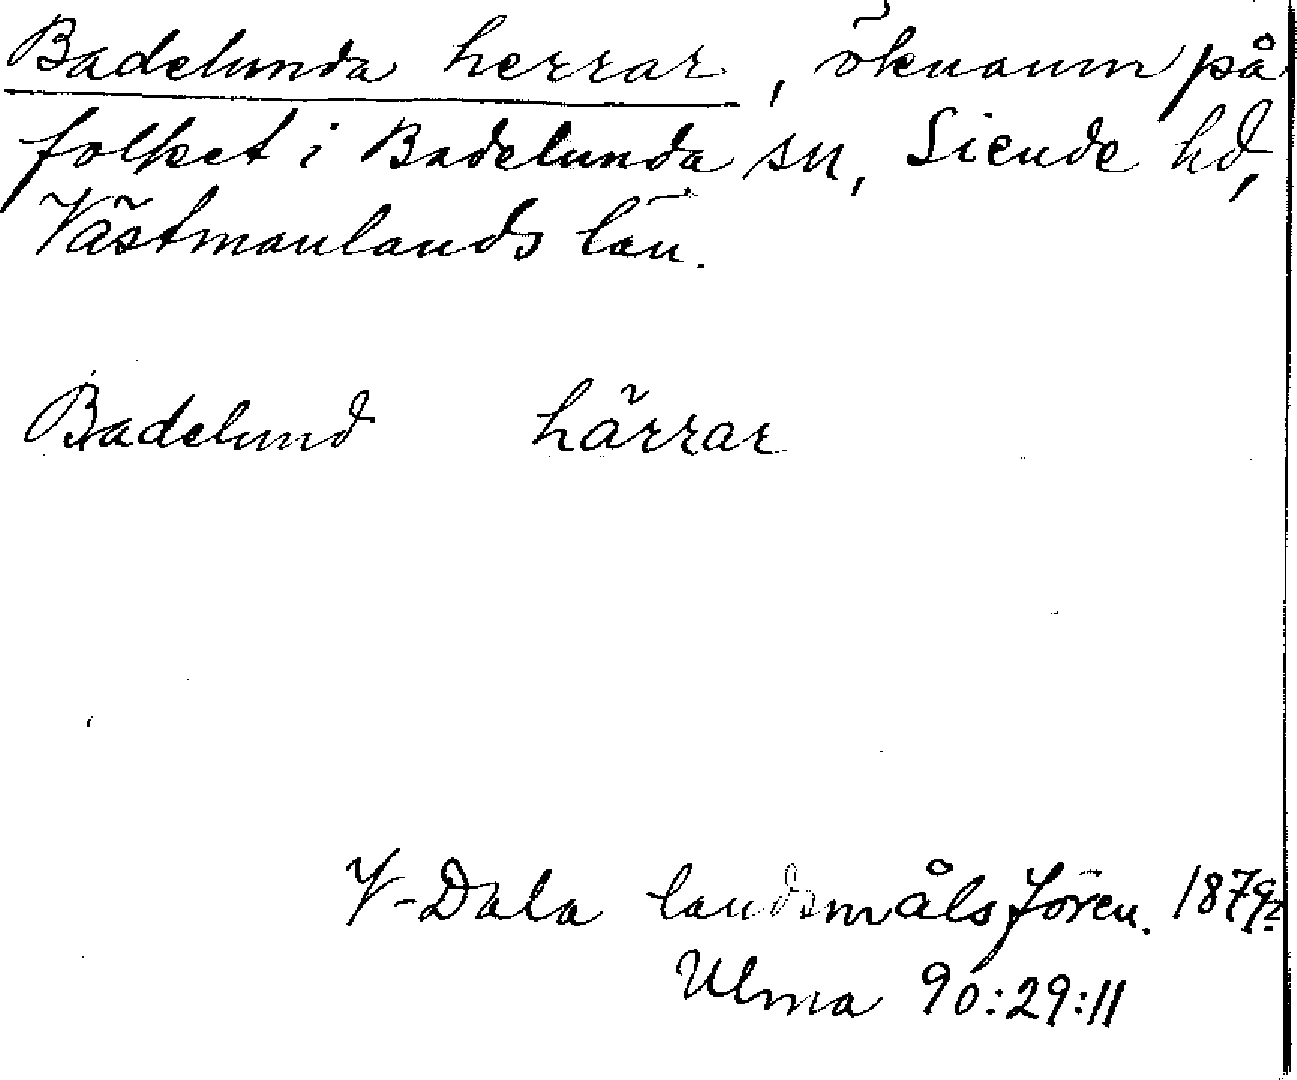 Badelunda herrar, öknamn på
folket i Badelunda sn, Siende hd,
Västmanlands län.
Badelund härrar
V-Dala landsmålsfören. 1879
Ulma 90:29:11